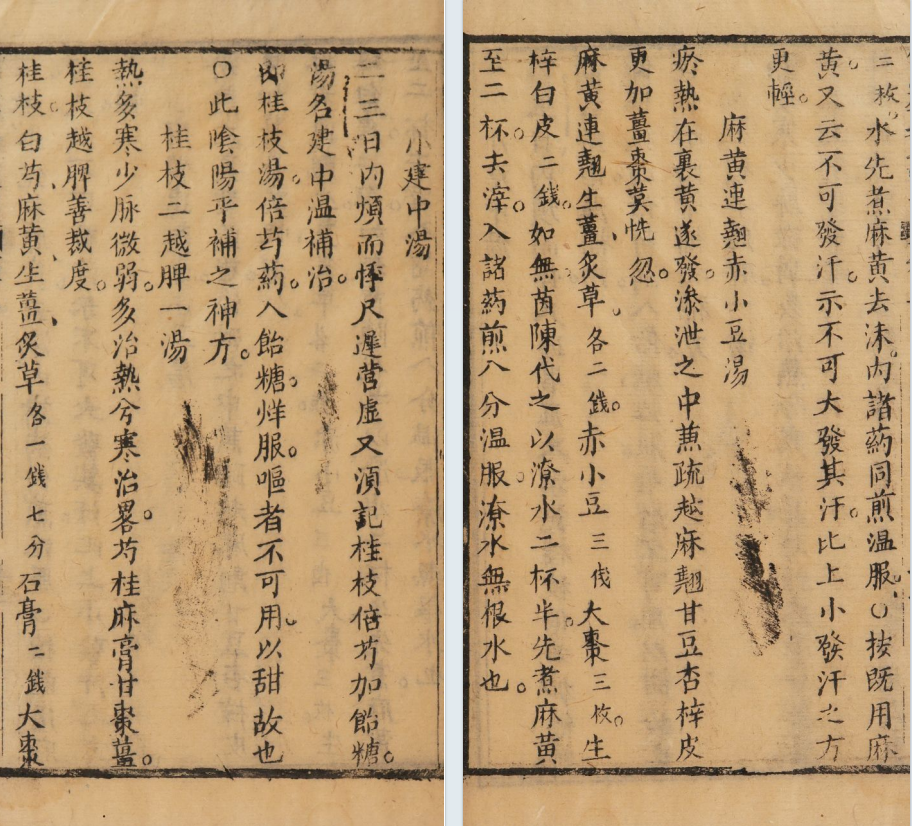 二枚。水先煮麻黄去沫。内諸药同煎温服。〇按既用麻
黄。又云不可發汗。示不可大發其汗。比上小發汗之方
更輕。
麻黄連翹赤小豆湯
瘀熱在裏黄遂發。滲泄之中蒹疏越麻翹甘豆杏梓皮
更加薑棗莫恍忽。
麻黄連翹生薑、炙草。各二錢。赤小豆三伐大棗三枚。生
梓白皮二錢。如無茵陳代之。以潦水二杯半。先煮麻黄
至二杯。去滓。入諸药煎八分温服。潦水無根水也。
小建中湯
二三日内煩而悸。尺遲营虚又湏記桂枝倍芍加飴糖。
湯名建中温補治。
即桂枝湯。倍芍药。入飴糖。烊服。嘔者不可用。以甜故也
〇此陰陽平補之神方。
桂枝二越脾一湯
熱多寒少脉微弱。多治熱兮寒治畧。芍桂麻膏甘棗薑。
桂枝越脾善裁度。
桂枝。白芍、麻黄、生薑、炙草各一錢七分石膏二錢大棗